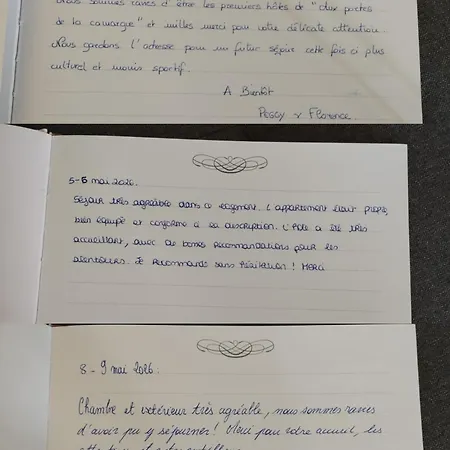 Nous sommes ravies d'être les premières hôtes de "aux portes
de la camargue" et milles merci pour votre délicate attention.
Nous gardons l'adresse pour un futur séjour cette fois ci plus
culturel et moins sportif.
A Bientôt
Peggy & Florence.
5-6 mai 2026.
Séjour très agréable dans ce logement. L'appartement était propre,
bien équipé et conforme à sa description. L'hôte a été très
accueillant, avec de bonnes recommandations pour les
alentours. Je recommande sans hésitation ! Merci
8 - 9 mai 2026.
Chambre et extérieur très agréable, nous sommes ravies
d'avoir pu y séjourner ! Merci pour votre accueil, les